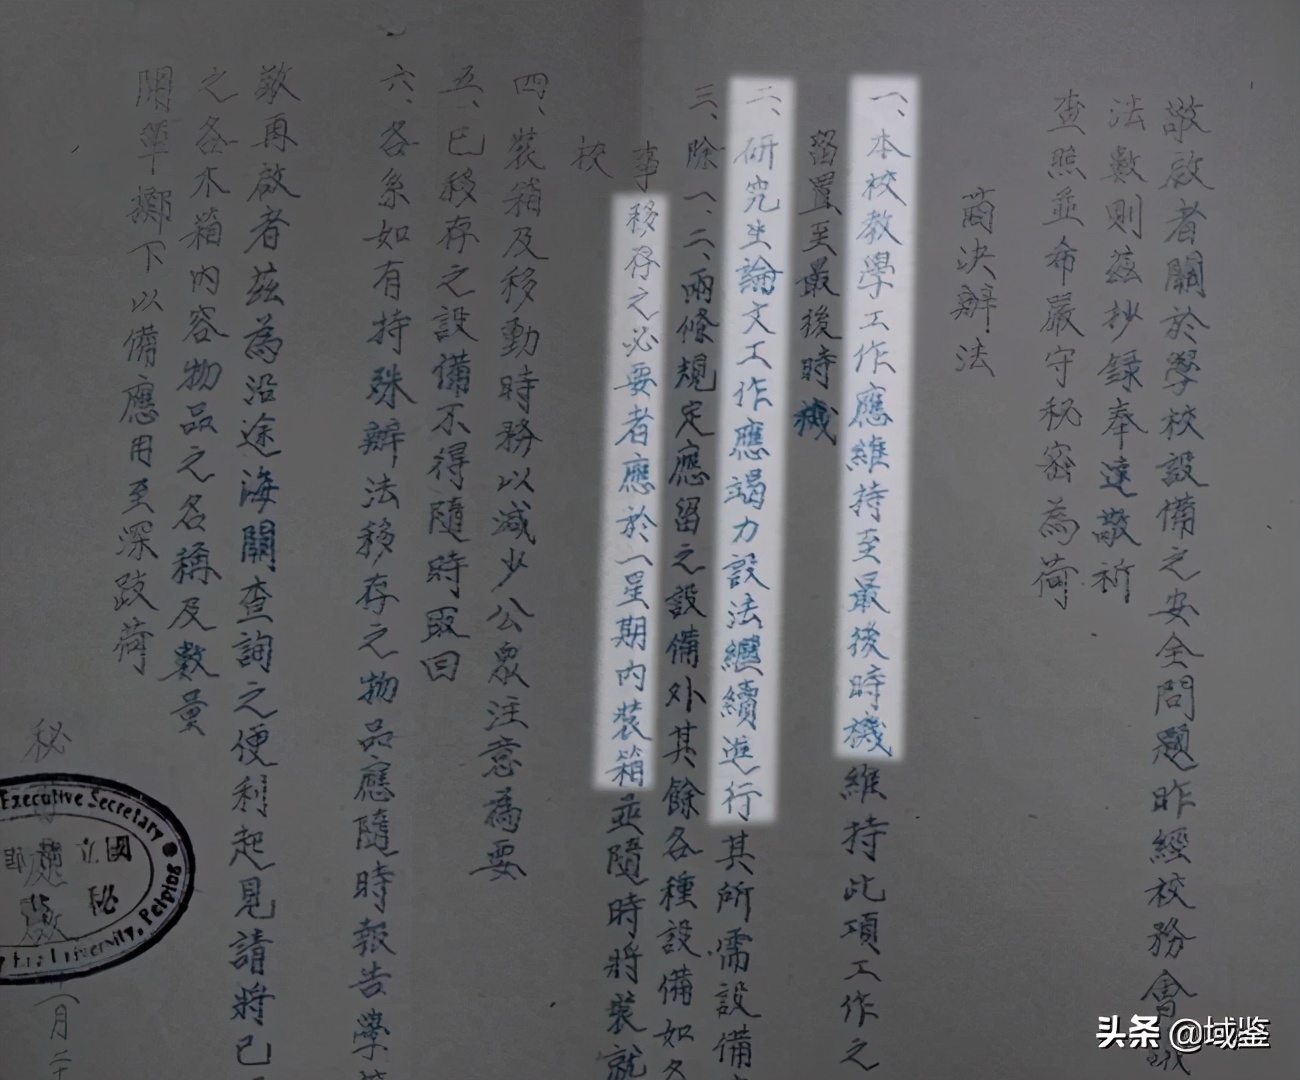 敬啟者關於學校設備之安全問題昨經校務會議
法數則茲抄錄奉達敬祈
查照並希嚴守秘密為荷
商決辦法
一、本校教學工作應維持至最後時機維持此項工作之
留置至最後時機
二、研究生論文工作應竭力設法繼續進行其所需設備
三、除一、二、兩條規定應留之設備外其餘各種設備如
事移存之必要者應於一星期內裝箱並隨時將裝就
校
四、裝箱及移動時務以減少公眾注意為要
五、已移存之設備不得隨時取回
六、各系如有持殊辦法移存之物品應隨時報告學
敬再啟者茲為沿途海關查詢之便利起見請將已
之各木箱內容物品之名稱及數量
開單擲下以備應用至深跂荷
秘書處啟 月二十
Executive Secretary
國立
秘
University, Peiping
头条 @域鉴